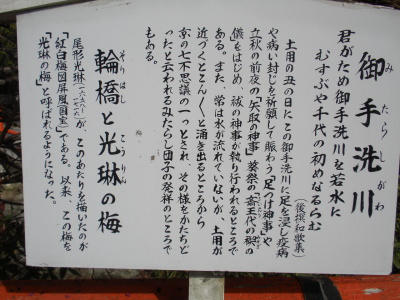 御手洗川
みたらしがわ
君がため御手洗川を若水に
むすぶや千代の初めなるらむ
(後撰和歌集)
土用の丑の日にこの御手洗川に足を浸し疫病
や病い封じを祈願して賑わう「足つけ神事」や
立秋の前夜の「矢取の神事」、葵祭の「斎王代の禊の
儀」をはじめ、祓の神事が執り行われるところで
ある。また、常は水が流れていないが、土用が
近づくとこんこんと湧き出るところから
京の七不思議の一つとされ、その様をかたちど
ったと云われるみたらし団子の発祥のところで
もある。
輪橋と光琳の梅
そりはし こうりん
尾形光琳が、このあたりを描いたのが
「紅白梅図屏風」(国宝)である。以来、この梅を
「光琳の梅」と呼ばれるようになった。